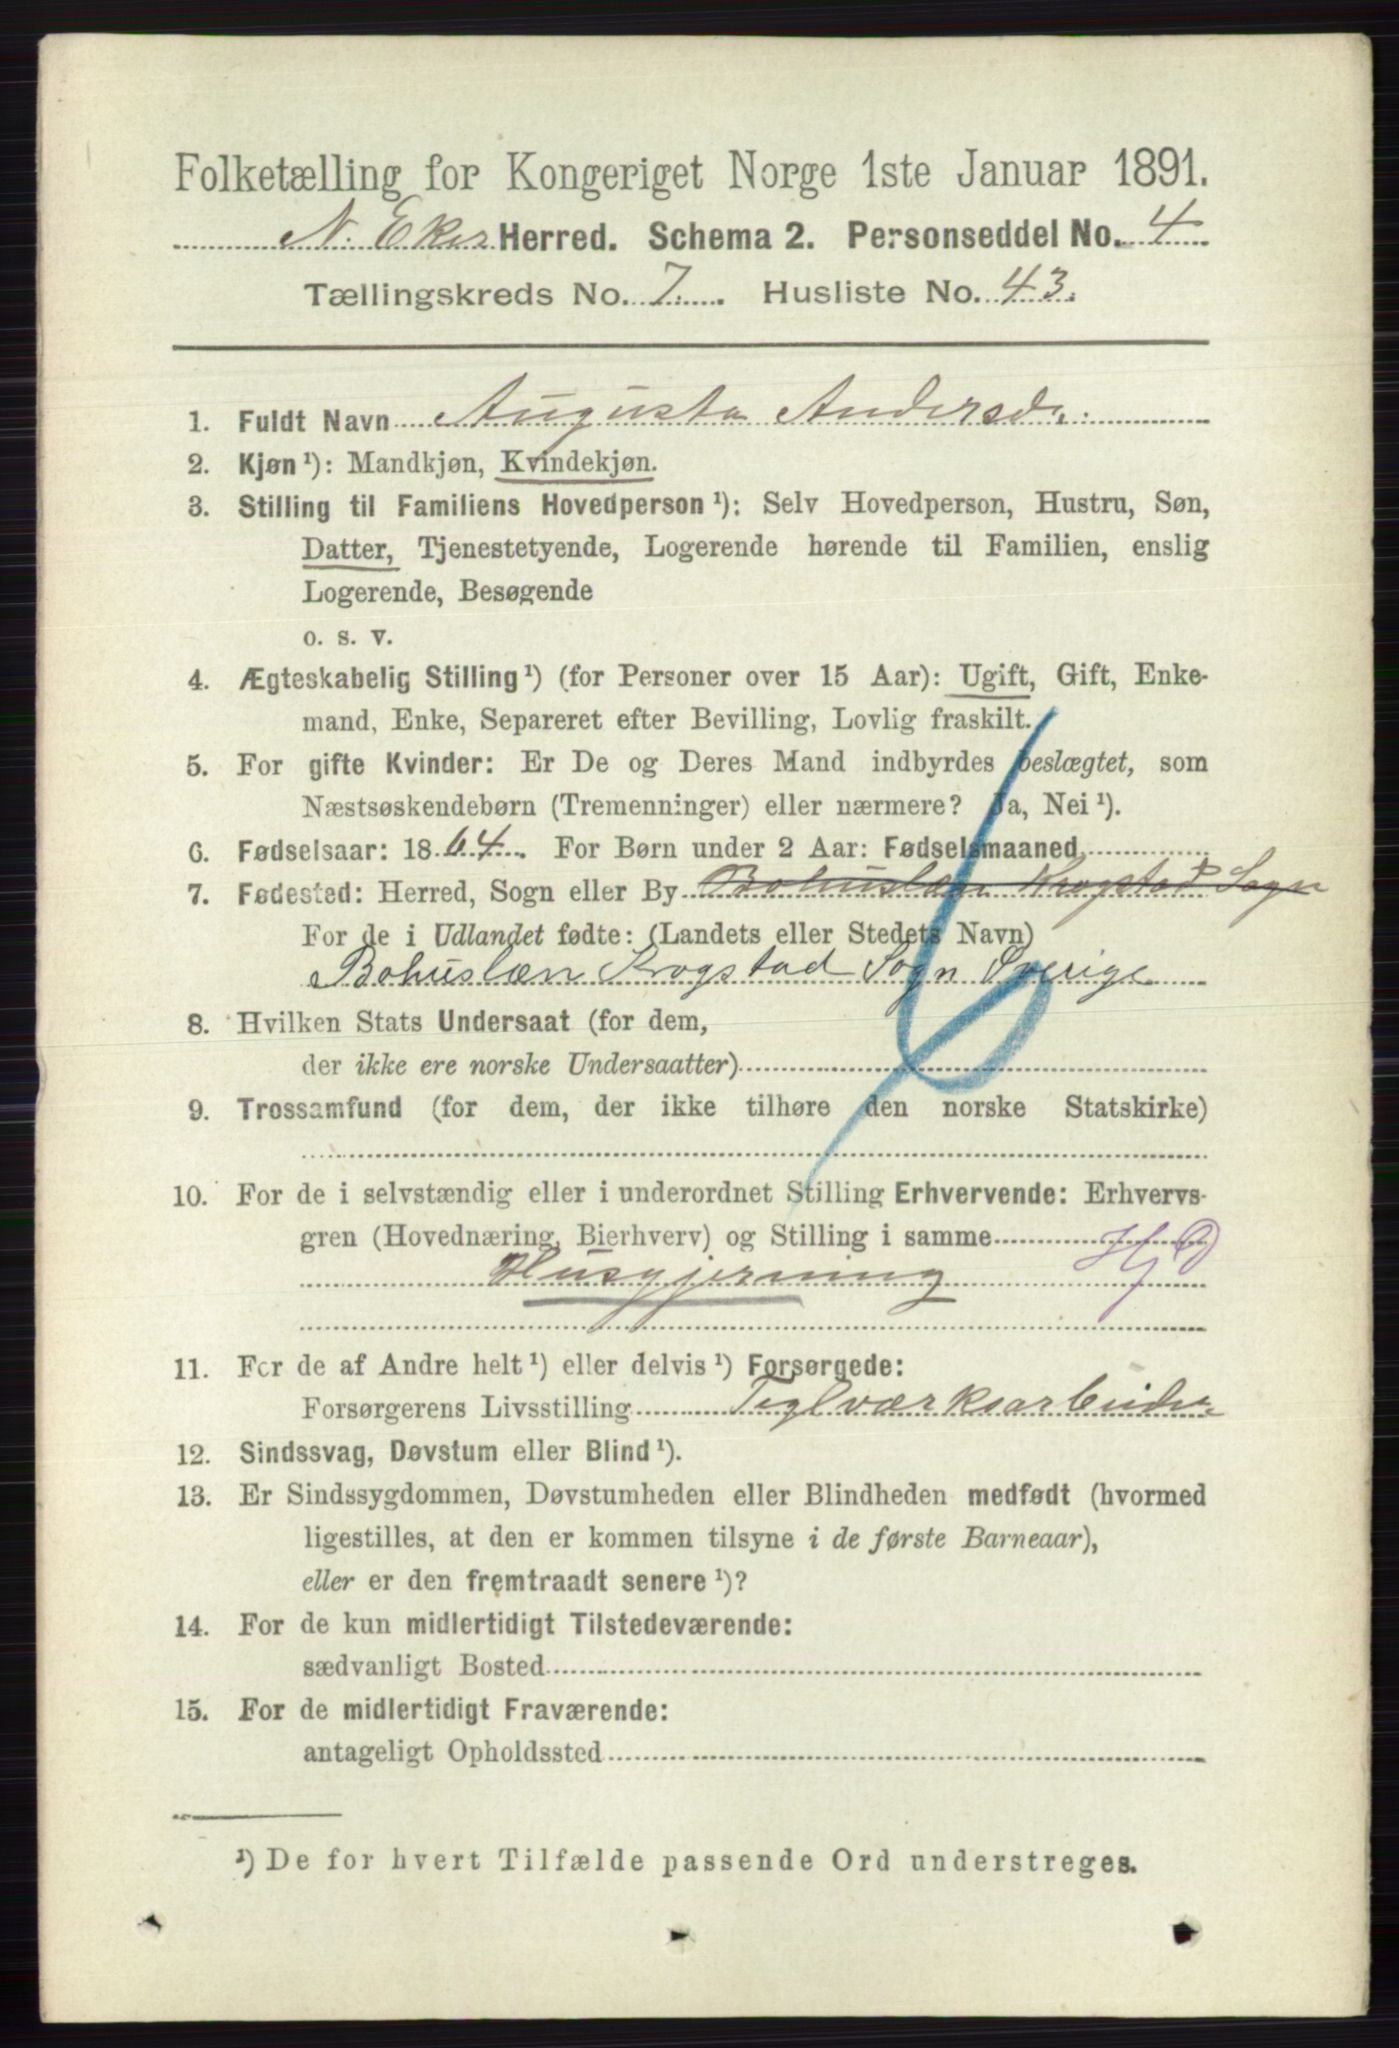 Folketælling for Kongeriget Norge 1ste Januar 1891.
N. Eker Herred. Schema 2. Personseddel No. 4
Tællingskreds No. 7. Husliste No. 43.
1. Fuldt Navn Augusta Andersdr.
2. Kjøn ¹): Mandkjøn, Kvindekjøn.
3. Stilling til Familiens Hovedperson ¹): Selv Hovedperson, Hustru, Søn,
Datter, Tjenestetyende, Logerende hørende til Familien, enslig
Logerende, Besøgende
o. s. v.
4. Ægteskabelig Stilling ¹) (for Personer over 15 Aar): Ugift, Gift, Enke-
mand, Enke, Separeret efter Bevilling, Lovlig fraskilt.
5. For gifte Kvinder: Er De og Deres Mand indbyrdes beslægtet, som
Næstsøskendebørn (Tremenninger) eller nærmere? Ja, Nei ¹).
6. Fødselsaar: 1864. For Børn under 2 Aar: Fødselsmaaned
7. Fødested: Herred, Sogn eller By Bohuslæn Krogstad Sogn
For de i Udlandet fødte: (Landets eller Stedets Navn)
Bohuslæn Krogstad Sogn Sverige
8. Hvilken Stats Undersaat (for dem,
der ikke ere norske Undersaatter)
9. Trossamfund (for dem, der ikke tilhøre den norske Statskirke)
10. For de i selvstændig eller i underordnet Stilling Erhvervende: Erhvervs-
gren (Hovednæring, Bierhverv) og Stilling i samme
Husgjerning HjD
11. For de af Andre helt ¹) eller delvis ¹) Forsørgede:
Forsørgerens Livsstilling Teglværksarbeider
12. Sindssvag, Døvstum eller Blind ¹).
13. Er Sindssygdommen, Døvstumheden eller Blindheden medfødt (hvormed
ligestilles, at den er kommen tilsyne i de første Barneaar),
eller er den fremtraadt senere ¹)?
14. For de kun midlertidigt Tilstedeværende:
sædvanligt Bosted
15. For de midlertidigt Fraværende:
antageligt Opholdssted
¹) De for hvert Tilfælde passende Ord understreges.